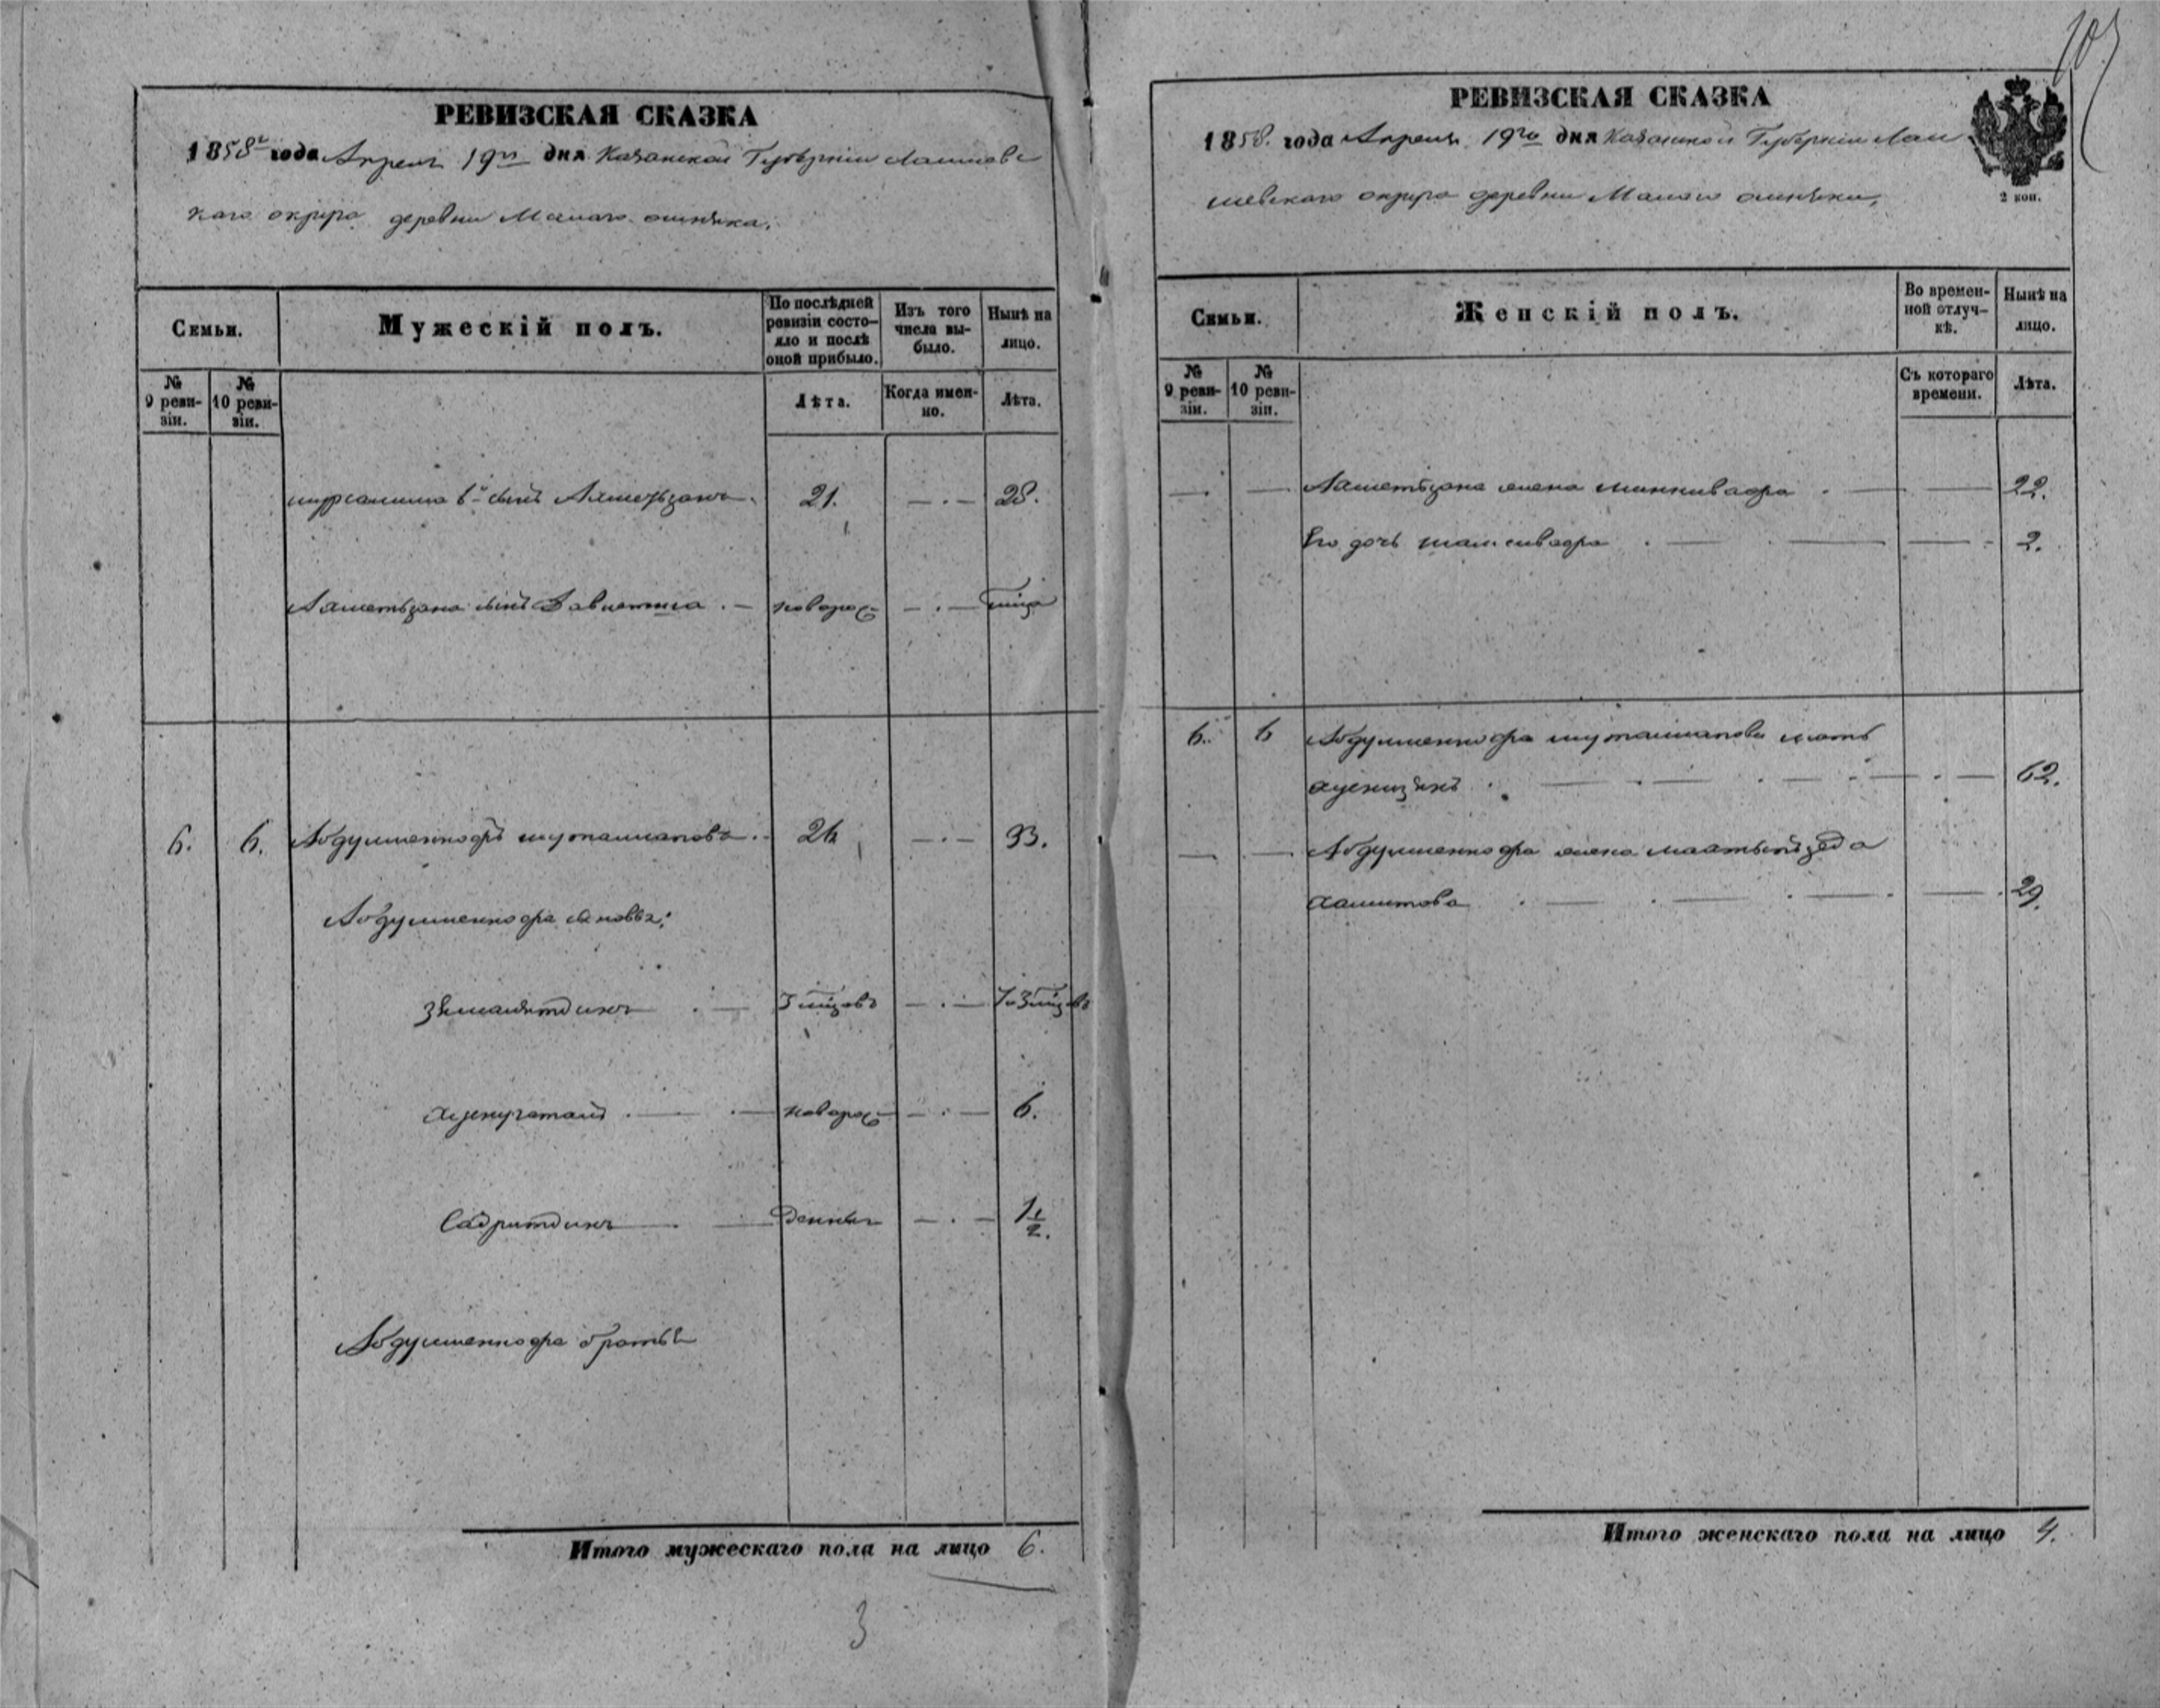 105
РЕВИЗСКАЯ СКАЗКА
1858 года Апреля 19го дня Казанской Губернiи Лаишевс
каго округа деревни Малаго ошняка.
Семьи.
Мужескій полъ.
По послѣдней ревизіи состо-
яло и послѣ
оной прибыло.
Изъ того
числа вы-
было.
Нынѣ на
лицо.
№
9 реви-
зіи.
№
10 реви-
зіи.
Лѣта.
Когда имен-
но.
Лѣта.
6й сынъ Ахметзянъ 21. 28.
Ахметьзяна сынъ новорож тица
6. 6. Абдулменнофъ муташаповъ 24 33.
Абдулменнофа сыновья:
7 мцовъ 7 и 3 мцовъ
новорож 6.
Садритдинъ денныя 1 1/2.
Абдулменнофа братья
Итого мужескаго пола на лицо 6.
3
РЕВИЗСКАЯ СКАЗКА
1858. года Апреля 19го дня Казанской Губернiи Лаи
шевскаго округа деревни Малаго ошняка,
2 коп.
Семьи.
Женскій полъ.
Во времен-
ной отлуч-
кѣ.
Нынѣ на
лицо.
№
9 реви-
зіи.
№
10 реви-
зіи.
Съ котораго
времени.
Лѣта.
Ахметьзяна жена 22.
Его дочь 2.
6. 6 Абдулменнофа муташапова мать
62.
Абдулменнофа жена
29.
Итого женскаго пола на лицо 4.